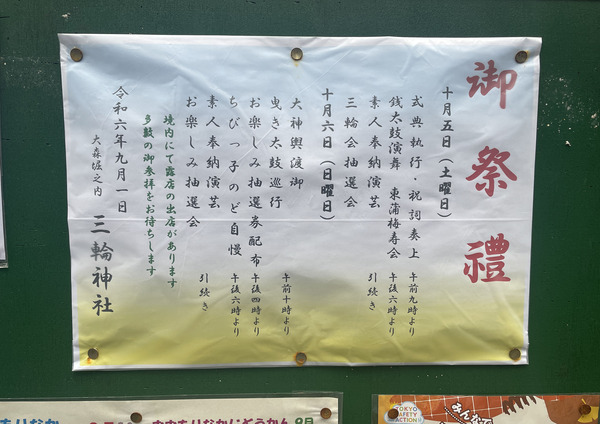 御祭禮
十月五日（土曜日）
式典執行・祝詞奏上　午前九時より
銭太鼓演舞　東蒲梅寿会　午後六時より
素人奉納演芸　引続き
三輪会抽選会
十月六日（日曜日）
大神輿渡御　午前十時より
曳き太鼓巡行
お楽しみ抽選券配布　午後四時より
ちびっ子のど自慢　午後六時より
素人奉納演芸　引続き
お楽しみ抽選会
境内にて露店の出店があります
多数の御参拝をお待ちします
令和六年九月一日
大森堀之内　三輪神社
TOKYO
SAFETY
ACTION
みんなで